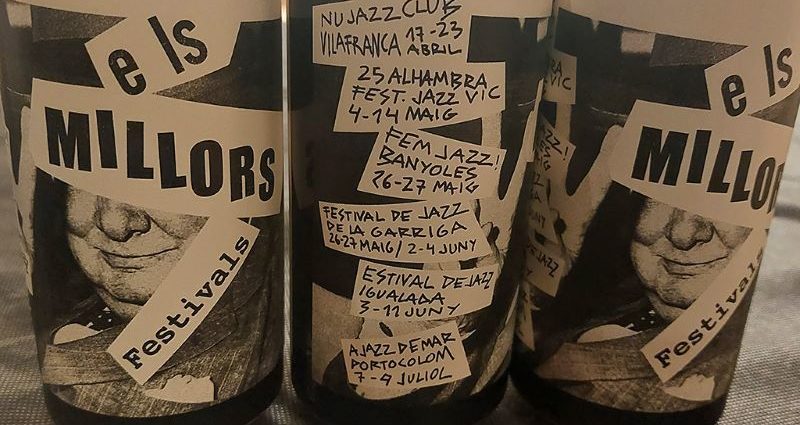 e ls
MILLORS
Festivals
NU JAZZ CLUB
VILAFRANCA 17-23
ABRIL
25 ALHAMBRA
FEST. JAZZ VIC
4-14 MAIG
FEM JAZZ!
BANYOLES
26-27 MAIG
FESTIVAL DE JAZZ
DE LA GARRIGA
26-27 MAIG / 2-4 JUNY
ESTIVAL DE JAZZ
IGUALADA
3-11 JUNY
AJAZZ DE MAR
PORTOCOLOM
7-9 JULIOL
e ls
MILLOR
Festivals